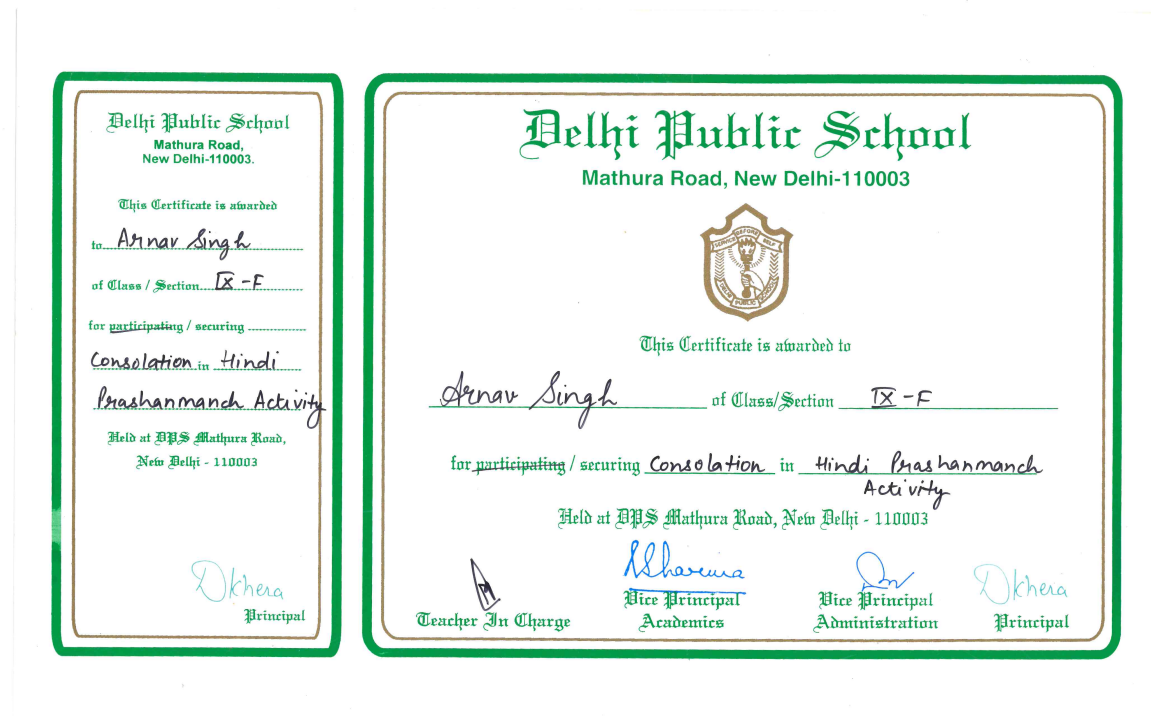 Delhi Public School
Mathura Road,
New Delhi-110003.
This Certificate is awarded
to Arnav Singh
of Class / Section IX-F
for participating / securing
Consolation in Hindi
Prashanmanch Activity
Held at DPS Mathura Road,
New Delhi - 110003
Dkhera
Principal
Delhi Public School
Mathura Road, New Delhi-110003
SERVICE BEFORE SELF
DELHI PUBLIC SCHOOL
This Certificate is awarded to
Arnav Singh of Class/Section IX-F
for participating / securing Consolation in Hindi Prashanmanch
Activity
Held at DPS Mathura Road, New Delhi - 110003
RSharma
Dkhera
Teacher In Charge
Vice Principal
Academics
Vice Principal
Administration
Principal